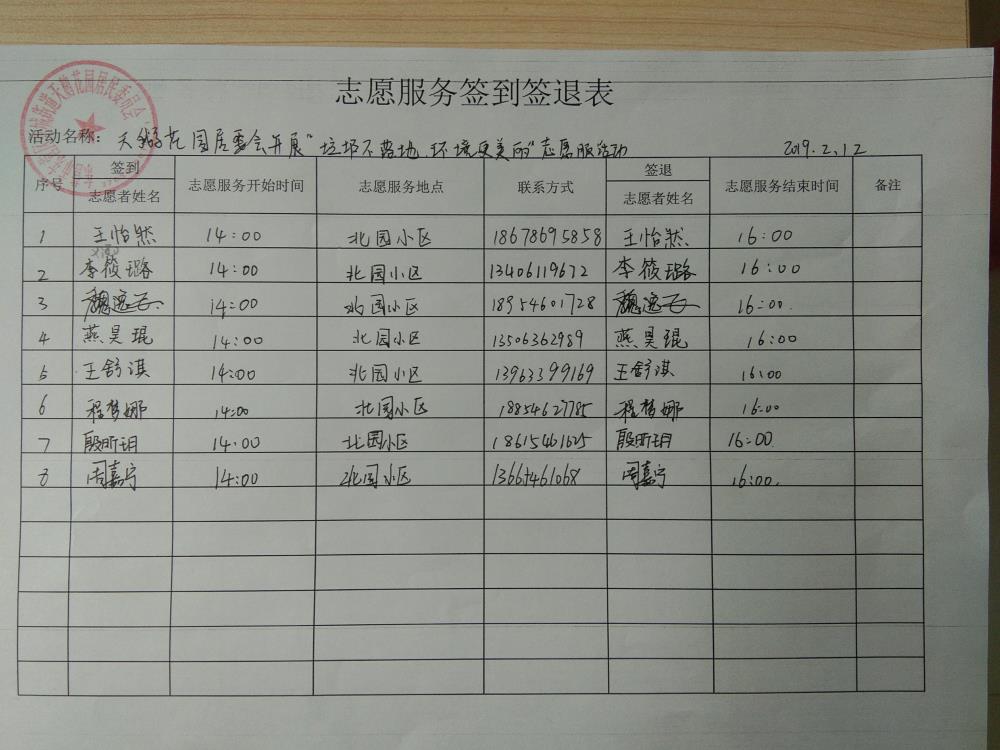 志愿服务签到签退表
活动名称：天鹅花园居委会开展"垃圾不落地、环境更美的"志愿服活动 2019.2.12
序号 签到 志愿者姓名 志愿服务开始时间 志愿服务地点 联系方式 签退 志愿者姓名 志愿服务结束时间 备注
1 王怡然 14:00 北园小区 18678695858 王怡然 16:00
2 李筱璐 14:00 北园小区 13406119672 李筱璐 16:00
3 魏逸云 14:00 北园小区 18954601728 魏逸云 16:00.
4 燕昊琨 14:00 北园小区 13506362989 燕昊琨 16:00
5 王舒淇 14:00 北园小区 13963399169 王舒淇 16:00
6 程梦娜 14:00 北园小区 18854627785 程梦娜 16:00
7 殷昕玥 14:00 北园小区 18615461625 殷昕玥 16:00
8 周嘉宁 14:00 北园小区 周嘉宁 16:00.